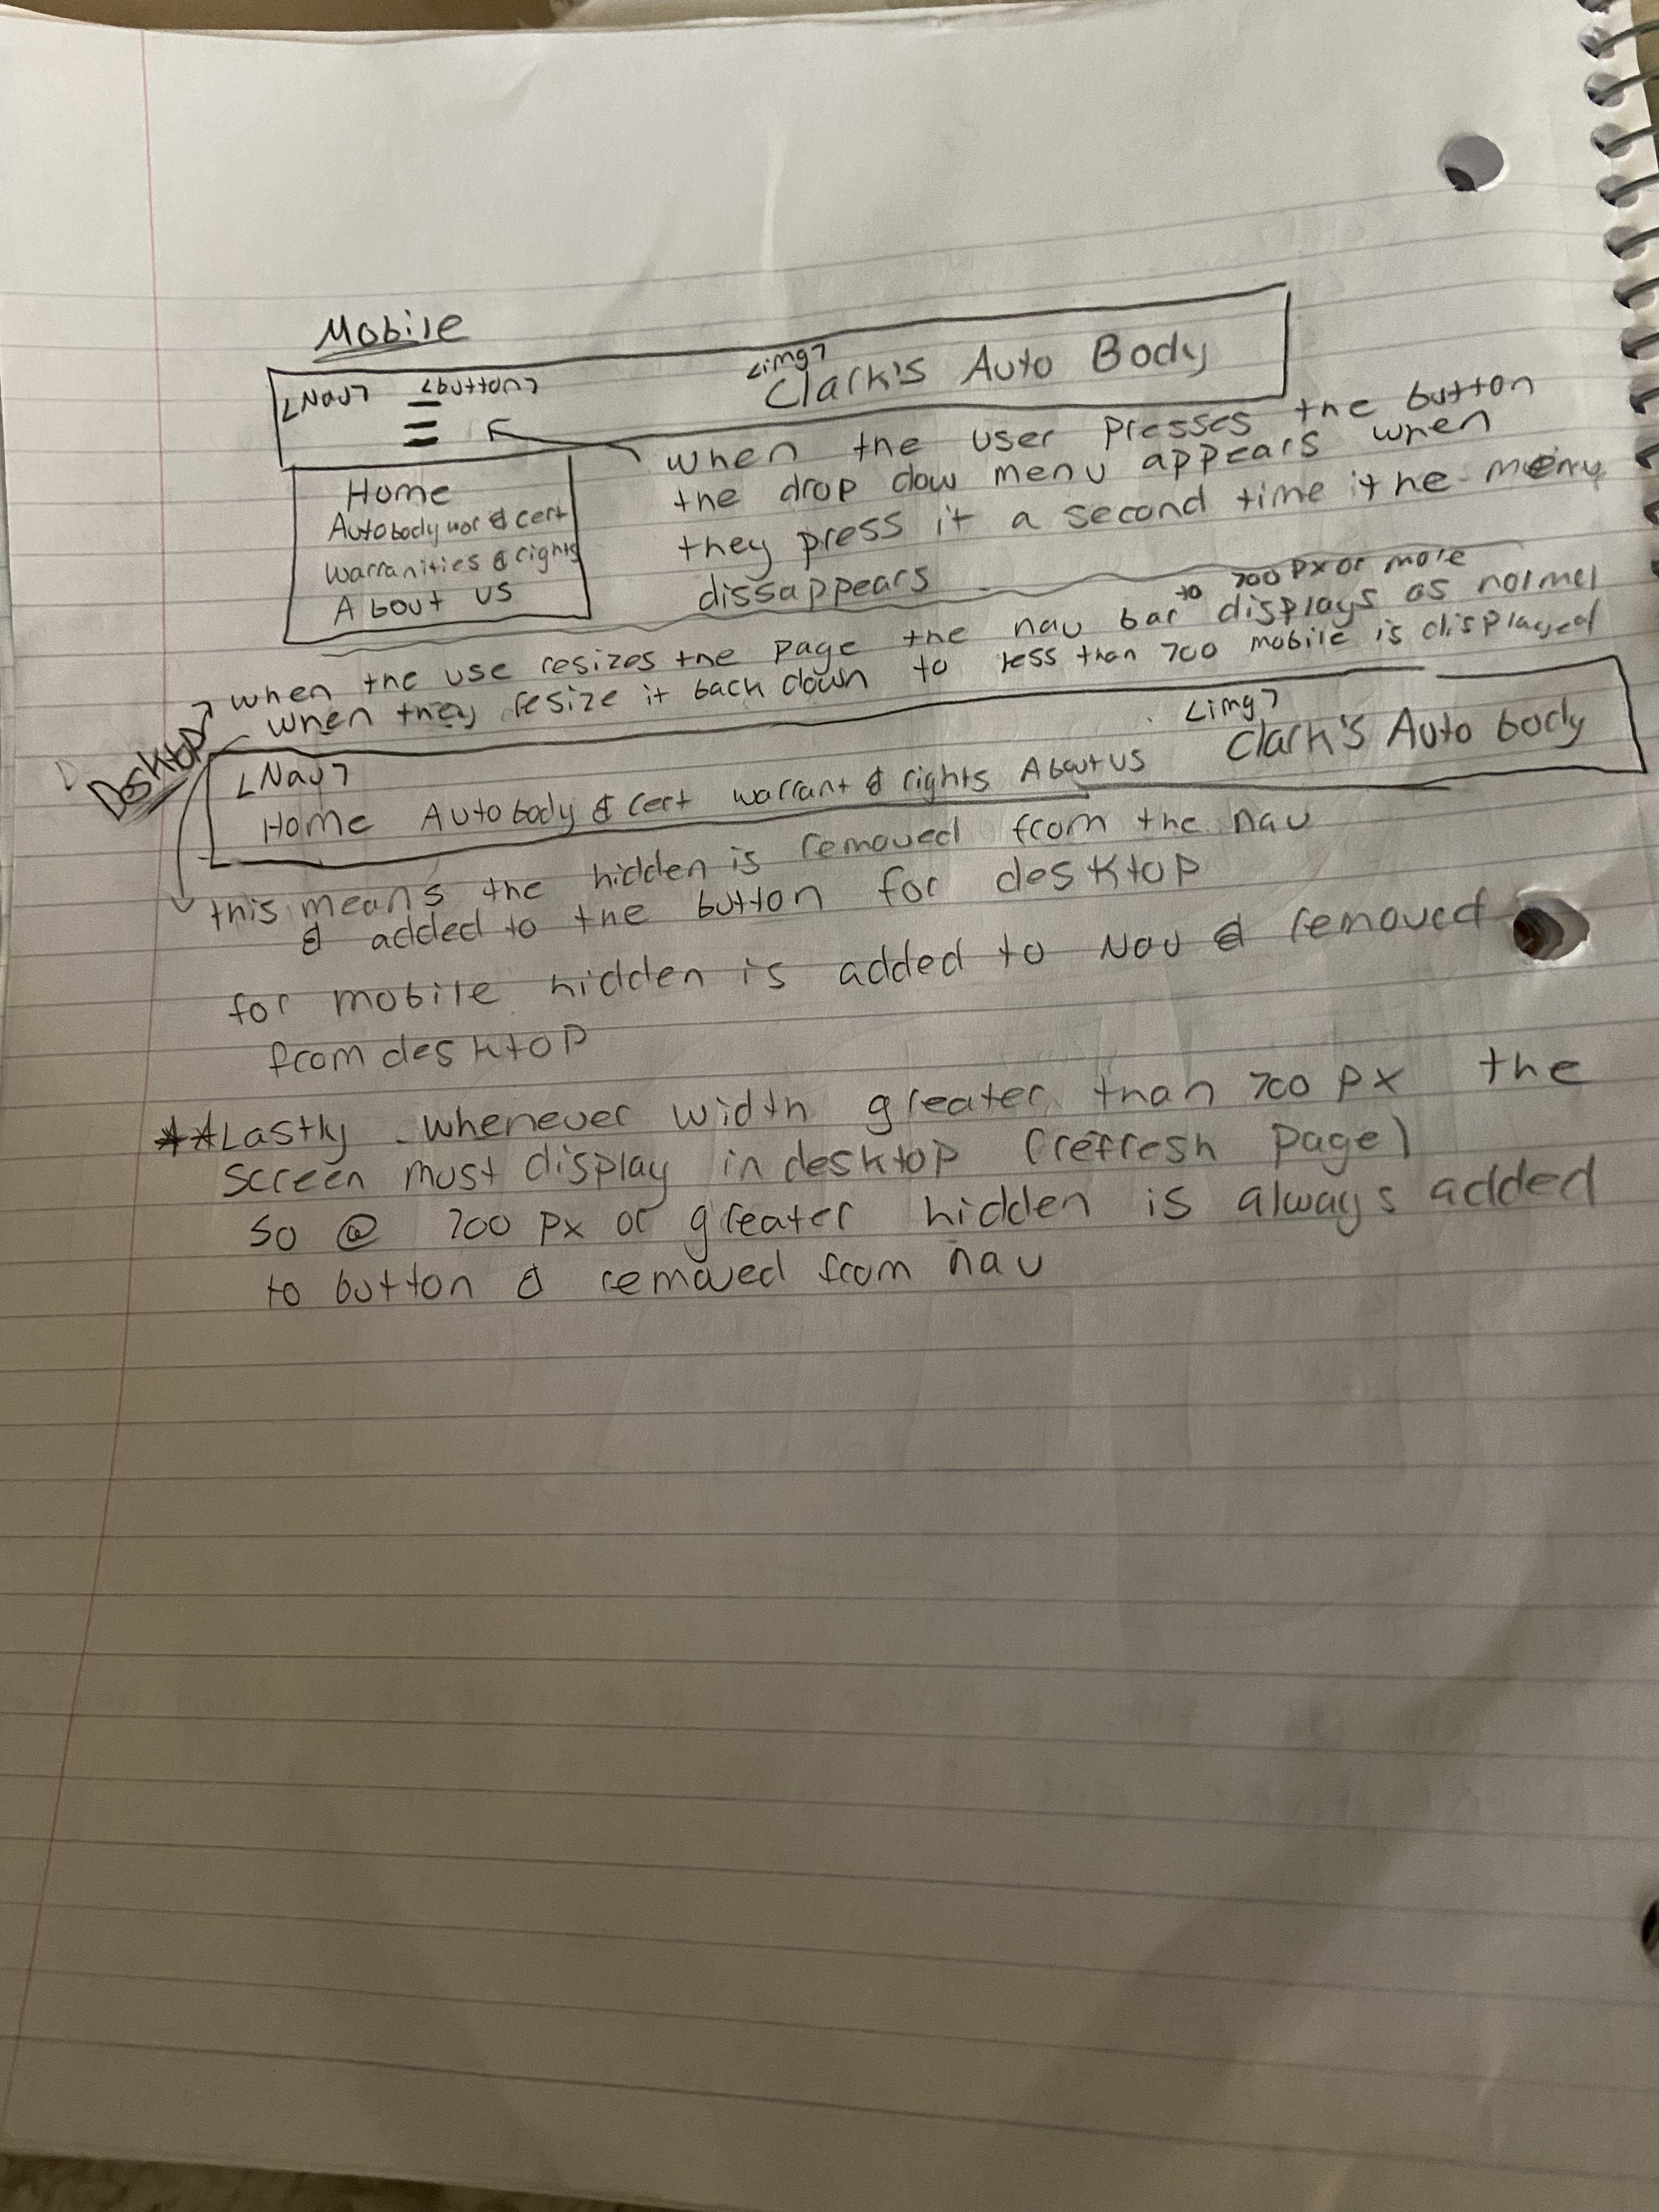 Mobile
<Nav> <button> <img>
Clark's Auto Body
Home
Autobody wor & cert
warranities & rights
About us
when the user presses the button
the drop dow menu appears when
they press it a second time the menu
dissappears
when the use resizes the page the nav bar to 700 px or more displays as normel
when they resize it back down to less than 700 mobile is displayed
Desktop
<Nav> <img>
Home Autobody & cert warrant & rights About us Clark's Auto body
this means the hidden is removed from the nav
& added to the button for desktop
for mobile hidden is added to Nav & removed
from desktop
**Lastly whenever width greater than 700 px the
screen must display in desktop (refresh page)
so @ 700 px or greater hidden is always added
to button & removed from nav